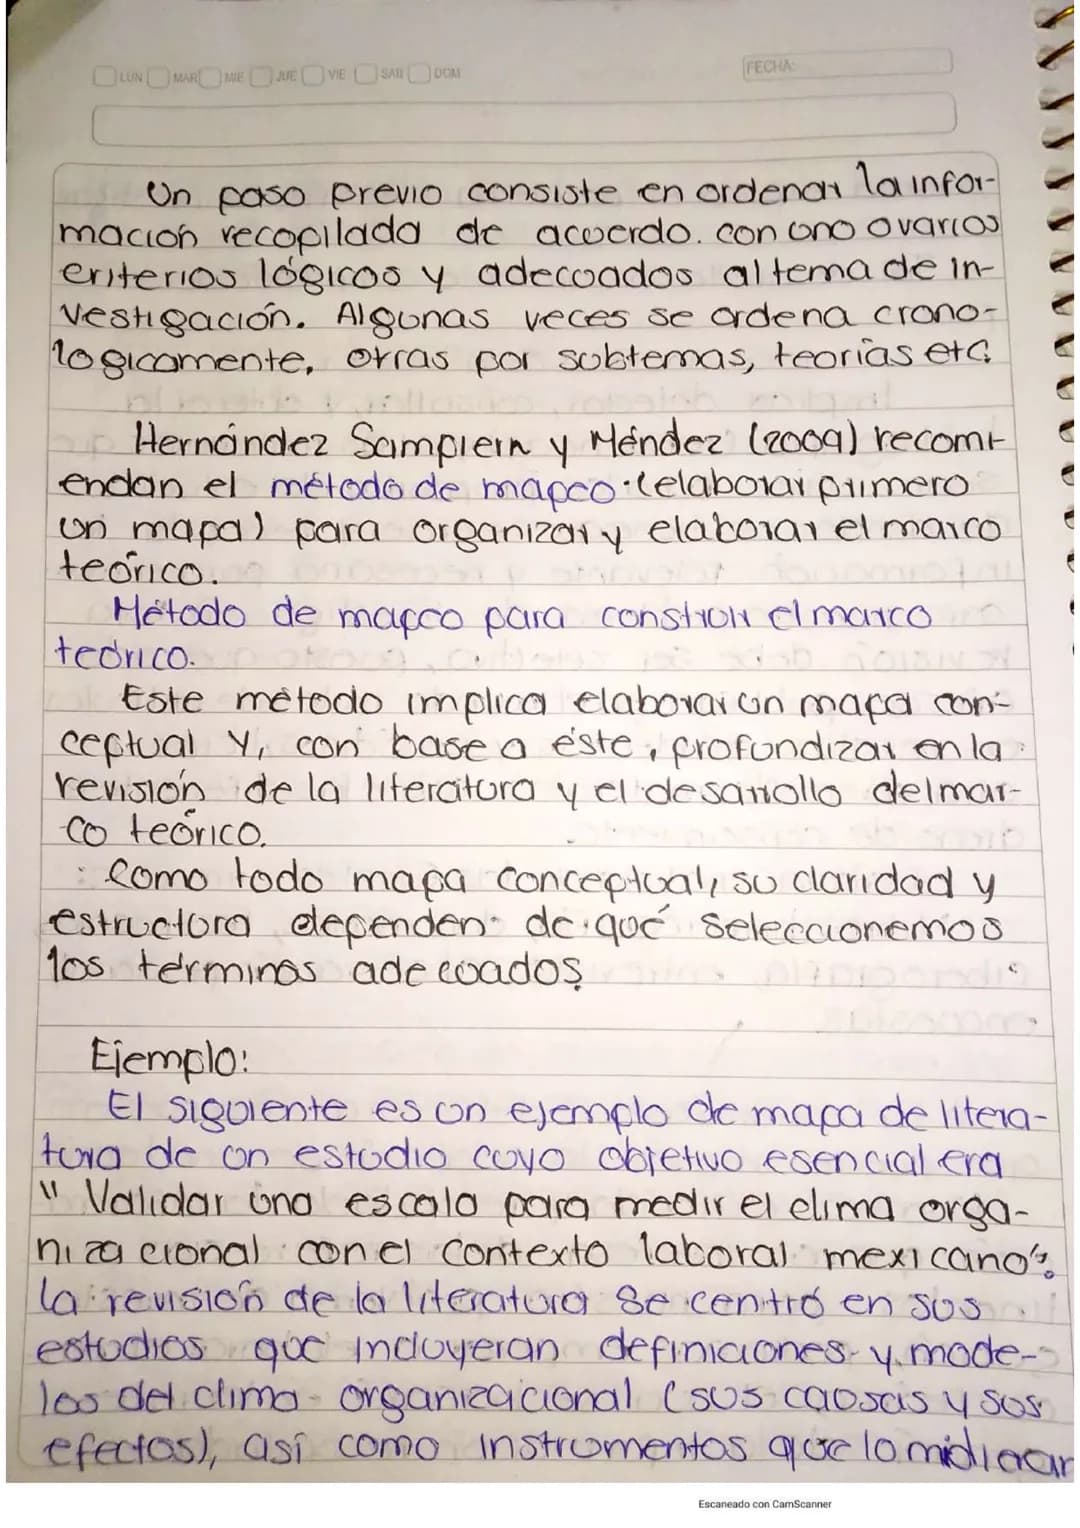 LUN MAR MIE JUE VIE SAB DOM
FECHA:
Un paso previo consiste en ordenar la infor-
mación recopilada de acuerdo. con uno o varios
criterios lógicos y adecuados al tema de in-
vestigación. Algunas veces se ordena crono-
logicamente, otras por subtemas, teorías etc.
Hernández Sampieri y Méndez (2009) recomi-
endan el método de mapeo (elaborar primero
un mapa) para organizar y elaborar el marco
teórico.
Método de mapeo para construir el marco
teórico.
Este método implica elaborar un mapa con-
ceptual y, con base a éste, profundizar en la
revisión de la literatura y el desarrollo del mar-
co teórico.
Como todo mapa conceptual, su claridad y
estructura dependen de qué seleccionemos
los términos adecuados.
Ejemplo:
El siguiente es un ejemplo de mapa de litera-
tura de un estudio cuyo objetivo esencial era
"Validar una escala para medir el clima orga-
nizacional con el contexto laboral mexicano".
la revisión de la literatura se centró en sus
estudios que incluyeran definiciones y mode-
los del clima organizacional (sus causas y sus
efectos), así como instrumentos que lo midieran
Escaneado con CamScanner